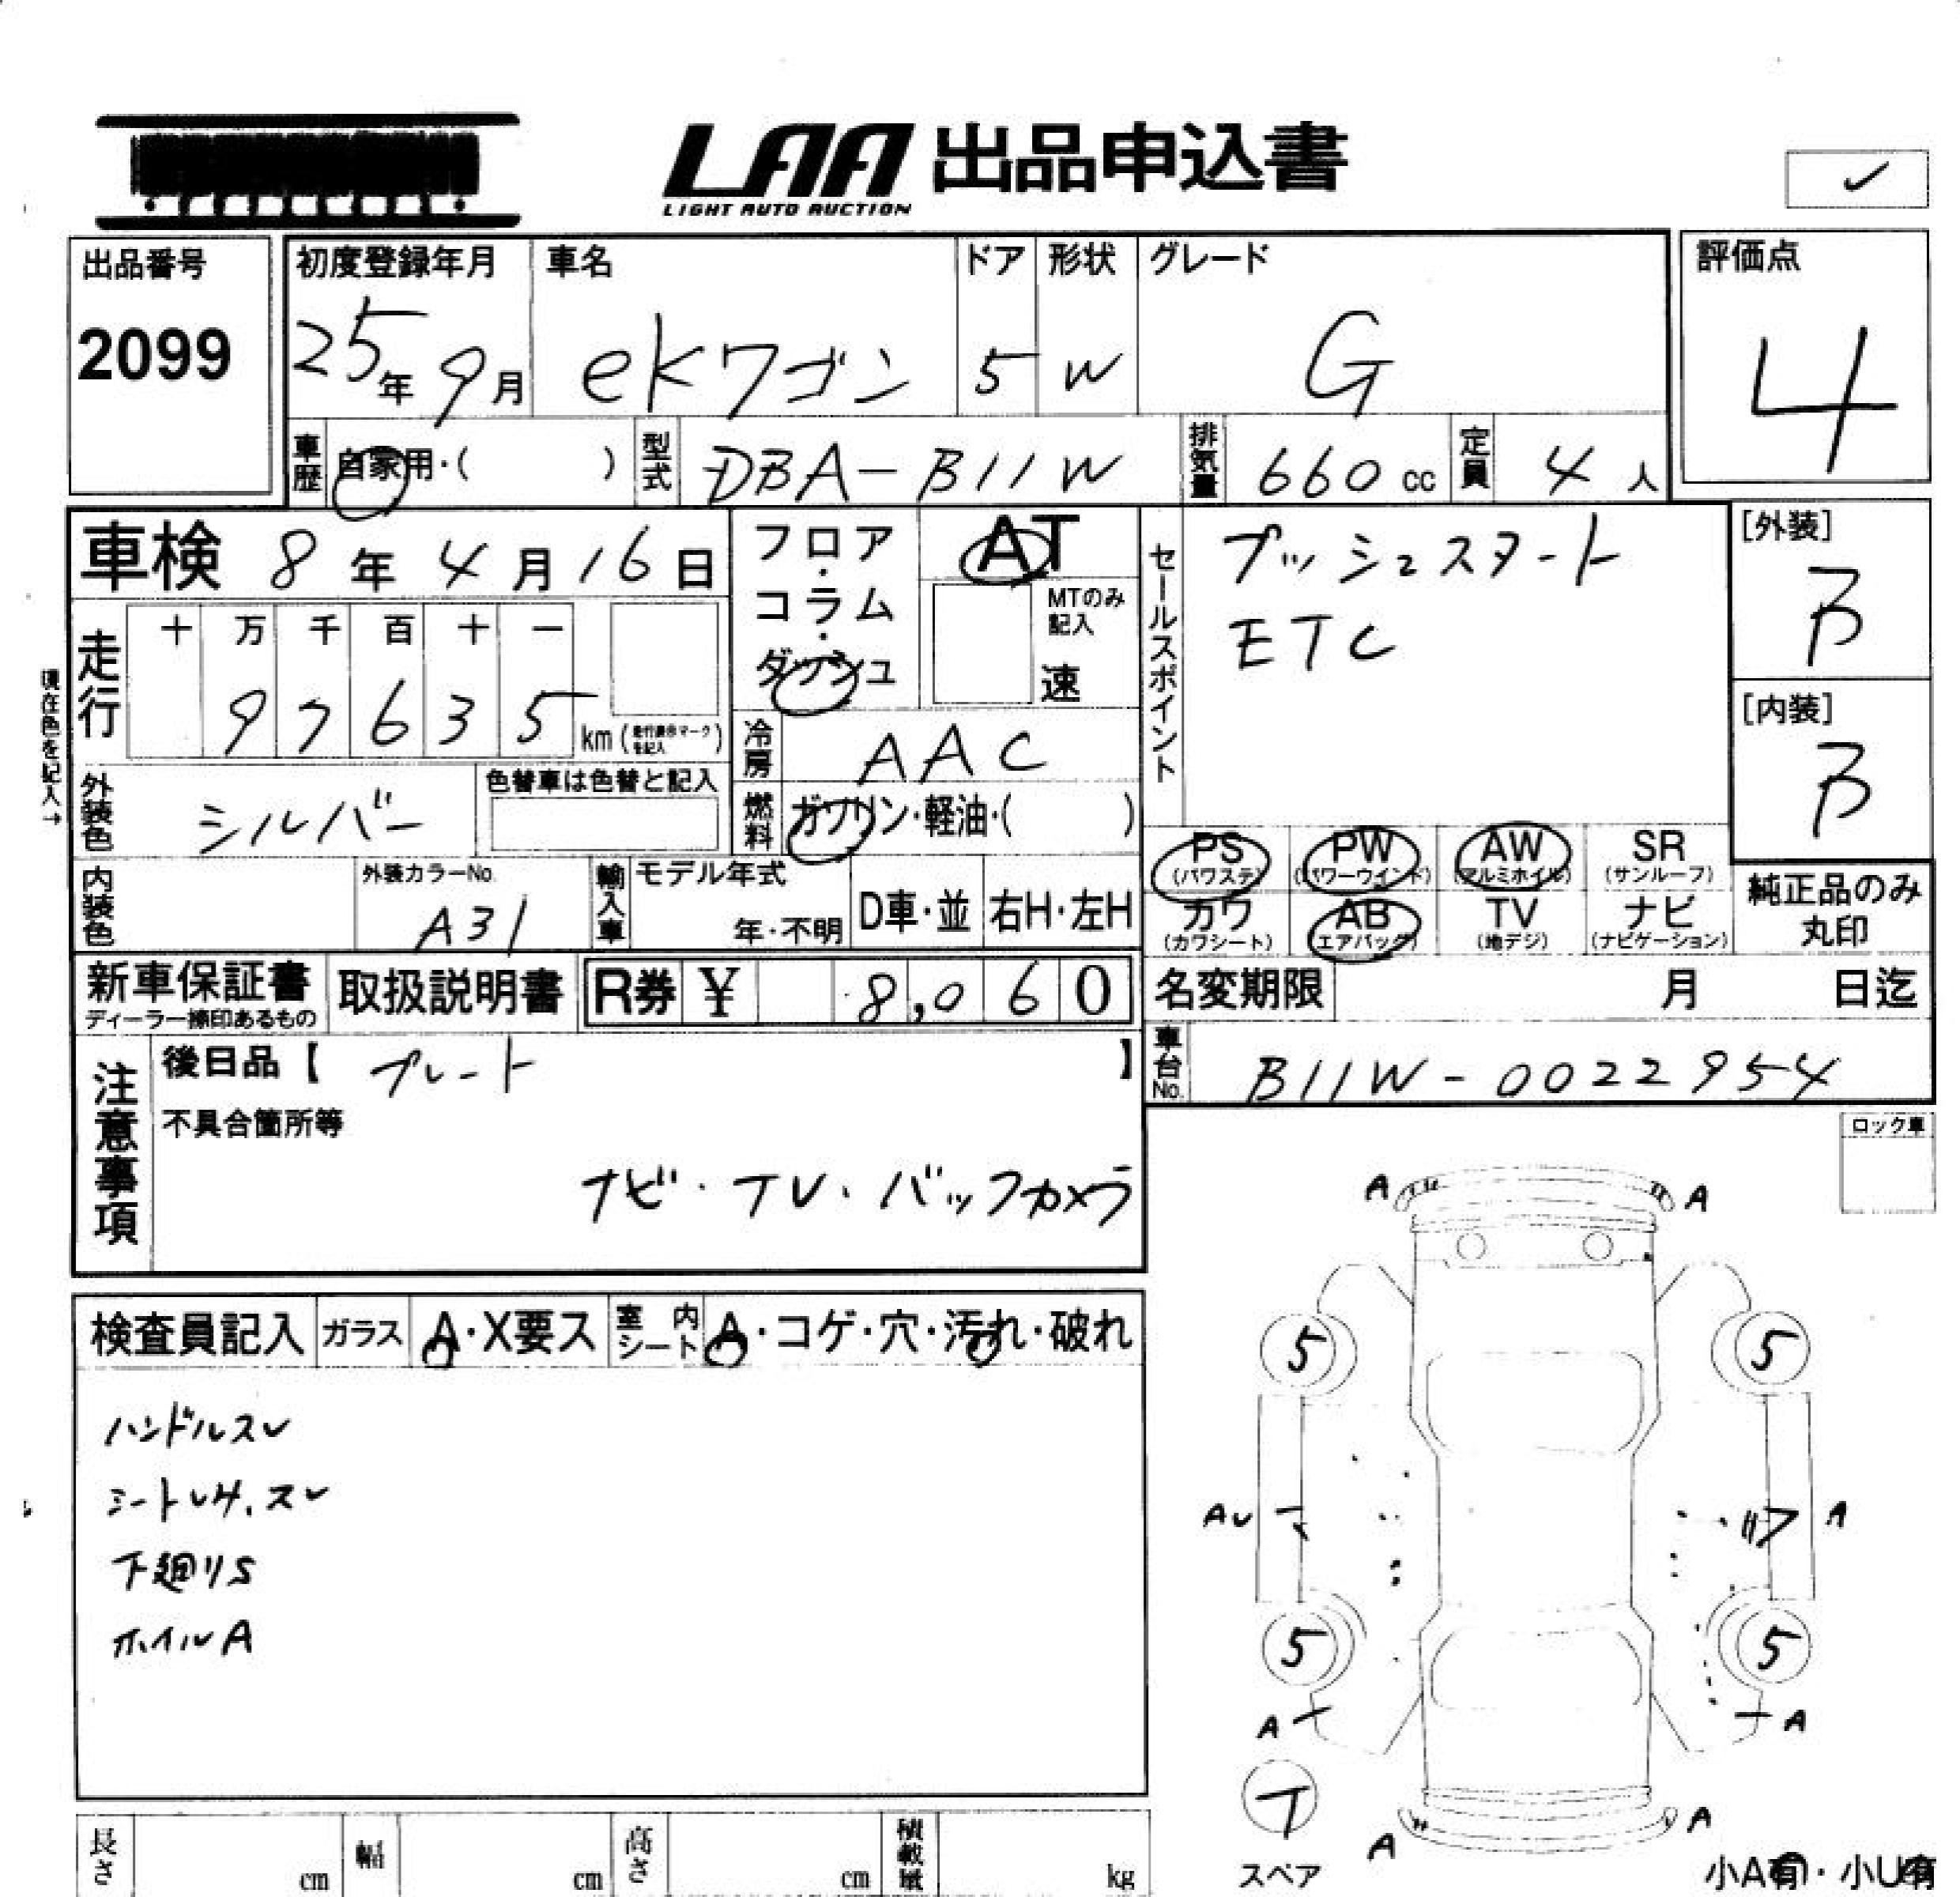 LAA 出品申込書
LIGHT AUTO AUCTION
✓
出品番号 2099
初度登録年月 25年 9月
車名 eKワゴン
ドア 5
形状 W
グレード G
評価点 4
車歴 自家用・( )
型式 DBA-B11W
排気量 660 cc
定員 4 人
車検 8年 4月 16日
フロア・コラム・ダッシュ
AT
MTのみ記入 速
セールスポイント
プッシュスタート
ETC
[外装] B
[内装] B
現在色を記入→
走行 十 万 千 百 十 一
97635 km
冷房 AAC
外装色 シルバー
色替車は色替と記入
燃料 ガソリン・軽油・( )
PS (パワステ) PW (パワーウインド) AW (アルミホイル) SR (サンルーフ)
カワ (カワシート) AB (エアバッグ) TV (地デジ) ナビ (ナビゲーション)
純正品のみ丸印
内装色
外装カラーNo. A31
輸入車 モデル年式 年・不明 D車・並 右H・左H
新車保証書 ディーラー捺印あるもの
取扱説明書
R券 ¥ 8,060
名変期限 月 日迄
車台No. B11W-0022954
注意事項
後日品【 プレート 】
不具合箇所等
ナビ・TV・バックカメラ
ロック車
検査員記入 ガラス A・X要ス 室内シート A・コゲ・穴・汚れ・破れ
ハンドルスレ
下廻りS
ホイルA
A A
5 5
A
5 5
A A
T
スペア
A A
小A有・小U有
長さ cm 幅 cm 高さ cm 積載量 kg